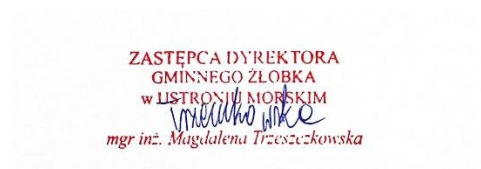 ZASTĘPCA DYREKTORA
GMINNEGO ŻŁOBKA
w USTRONIU MORSKIM
mgr inż. Magdalena Trzeszczkowska